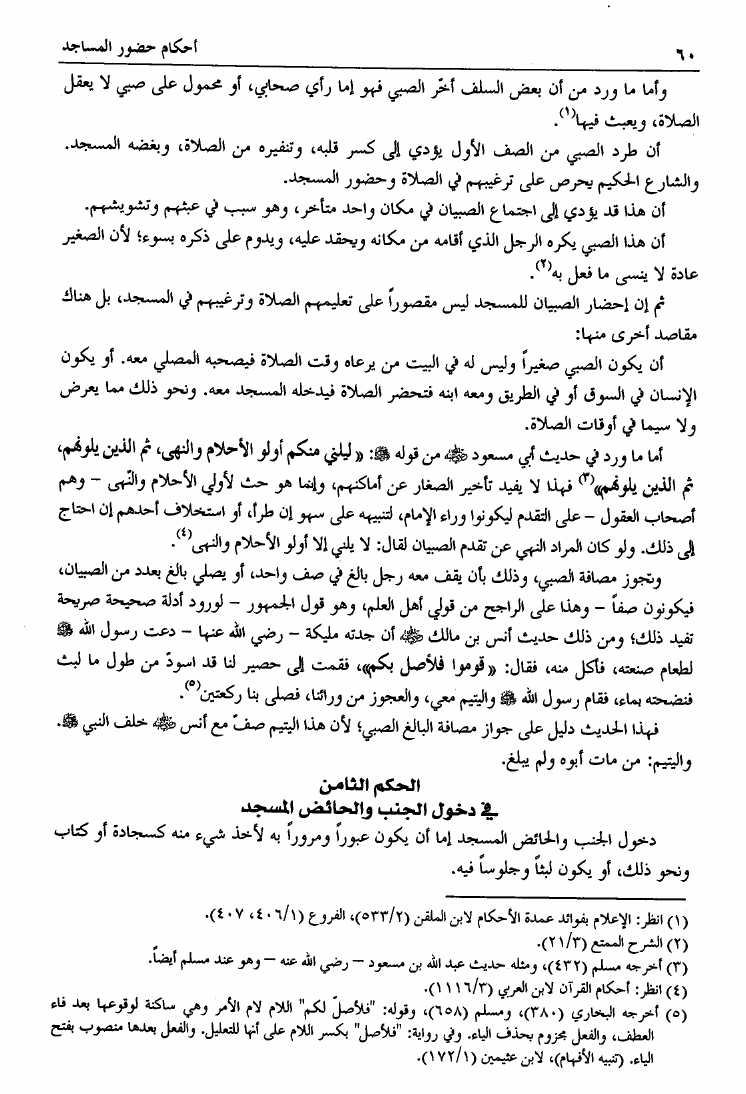 ٦٠
أحكام حضور المساجد
وأما ما ورد من أن بعض السلف أخّر الصبي فهو إما رأي صحابي، أو محمول على صبي لا يعقل
الصلاة، ويعبث فيها(١).
أن طرد الصبي من الصف الأول يؤدي إلى كسر قلبه، وتنفيره من الصلاة، وبغضه المسجد.
والشارع الحكيم يحرص على ترغيبهم في الصلاة وحضور المسجد.
أن هذا قد يؤدي إلى اجتماع الصبيان في مكان واحد متأخر، وهو سبب في عبثهم وتشويشهم.
أن هذا الصبي يكره الرجل الذي أقامه من مكانه ويحقد عليه، ويدوم على ذكره بسوء؛ لأن الصغير
عادة لا ينسى ما فعل به(٢).
ثم إن إحضار الصبيان للمسجد ليس مقصوراً على تعليمهم الصلاة وترغيبهم في المسجد، بل هناك
مقاصد أخرى منها:
أن يكون الصبي صغيراً وليس له في البيت من يرعاه وقت الصلاة فيصحبه المصلي معه. أو يكون
الإنسان في السوق أو في الطريق ومعه ابنه فتحضر الصلاة فيدخله المسجد معه. ونحو ذلك مما يعرض
ولا سيما في أوقات الصلاة.
أما ما ورد في حديث أبي مسعود ﷺ من قوله ﷺ: «ليلني منكم أولو الأحلام والنهى، ثم الذين يلونهم،
ثم الذين يلونهم»(٣) فهذا لا يفيد تأخير الصغار عن أماكنهم، وإنما هو حث لأولي الأحلام والنُّهى – وهم
أصحاب العقول – على التقدم ليكونوا وراء الإمام، لتنبيهه على سهو إن طرأ، أو استخلاف أحدهم إن احتاج
إلى ذلك. ولو كان المراد النهي عن تقدم الصبيان لقال: لا يلني إلا أولو الأحلام والنهى(٤).
وتجوز مصافة الصبي، وذلك بأن يقف معه رجل بالغ في صف واحد، أو يصلي بالغ بعدد من الصبيان،
فيكونون صفاً – وهذا على الراجح من قولي أهل العلم، وهو قول الجمهور – لورود أدلة صحيحة صريحة
تفيد ذلك؛ ومن ذلك حديث أنس بن مالك ﷺ أن جدته مليكة – رضي الله عنها – دعت رسول الله ﷺ
لطعام صنعته، فأكل منه، فقال: «قوموا فلأصل بكم»، فقمت إلى حصير لنا قد اسودّ من طول ما لبث
فنضحته بماء، فقام رسول الله ﷺ واليتيم معي، والعجوز من ورائنا، فصلى بنا ركعتين(٥).
فهذا الحديث دليل على جواز مصافة البالغ الصبي؛ لأن هذا اليتيم صفّ مع أنس ﷺ خلف النبي ﷺ.
واليتيم: من مات أبوه ولم يبلغ.
الحكم الثامن
في دخول الجنب والحائض المسجد
دخول الجنب والحائض المسجد إما أن يكون عبوراً ومروراً به لأخذ شيء منه كسجادة أو كتاب
ونحو ذلك، أو يكون لبثاً وجلوساً فيه.
(١) انظر: الإعلام بفوائد عمدة الأحكام لابن الملقن (٥٣٣/٢)، الفروع (٤٠٦/١، ٤٠٧).
(٢) الشرح الممتع (٢١/٣).
(٣) أخرجه مسلم (٤٣٢)، ومثله حديث عبد الله بن مسعود – رضي الله عنه – وهو عند مسلم أيضاً.
(٤) انظر: أحكام القرآن لابن العربي (١١١٦/٣).
(٥) أخرجه البخاري (٣٨٠)، ومسلم (٦٥٨)، وقوله: "فلأصلّ لكم" اللام لام الأمر وهي ساكنة لوقوعها بعد فاء
العطف، والفعل مجزوم بحذف الياء. وفي رواية: "فلأصل" بكسر اللام على أنها للتعليل. والفعل بعدها منصوب بفتح
الياء. (تنبيه الأفهام)، لابن عثيمين (١٧٢/١).